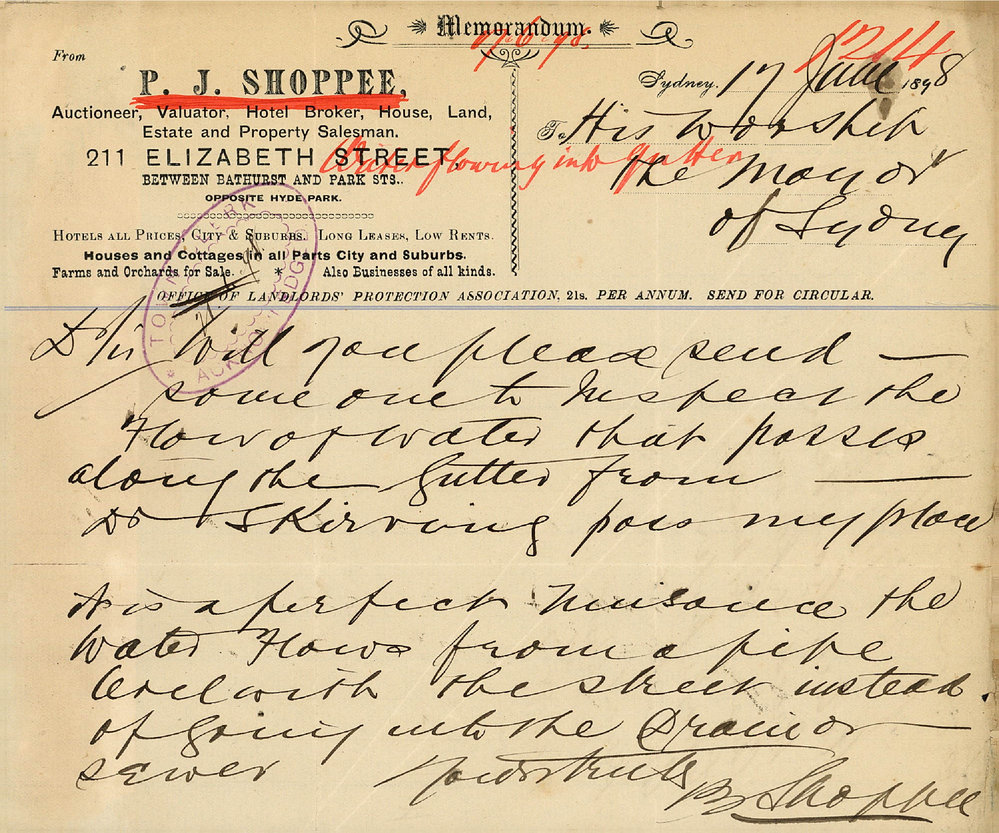 Memorandum.
17.6.98.
1214
From
P. J. SHOPPEE,
Auctioneer, Valuator, Hotel Broker, House, Land,
Estate and Property Salesman.
211 ELIZABETH STREET,
BETWEEN BATHURST AND PARK STS..
OPPOSITE HYDE PARK.
HOTELS ALL PRICES, CITY & SUBURBS. LONG LEASES, LOW RENTS.
Houses and Cottages in all Parts City and Suburbs.
Farms and Orchards for Sale. * Also Businesses of all kinds.
Sydney, 17 June 1898
To His Worship
the Mayor
of Sydney
Water flowing into gutter
TOWN CLERK
OFFICE OF LANDLORDS' PROTECTION ASSOCIATION, 21s. PER ANNUM. SEND FOR CIRCULAR.
D/Sir Will you please send —
some one to Inspect the
Flow of water that passes
along the Gutter from —
Dr Skirving pass my place
It is a perfect Nuisance the
Water Flows from a pipe
level with the street instead
of going into the Drain or
sewer Yours truly
P J Shoppee